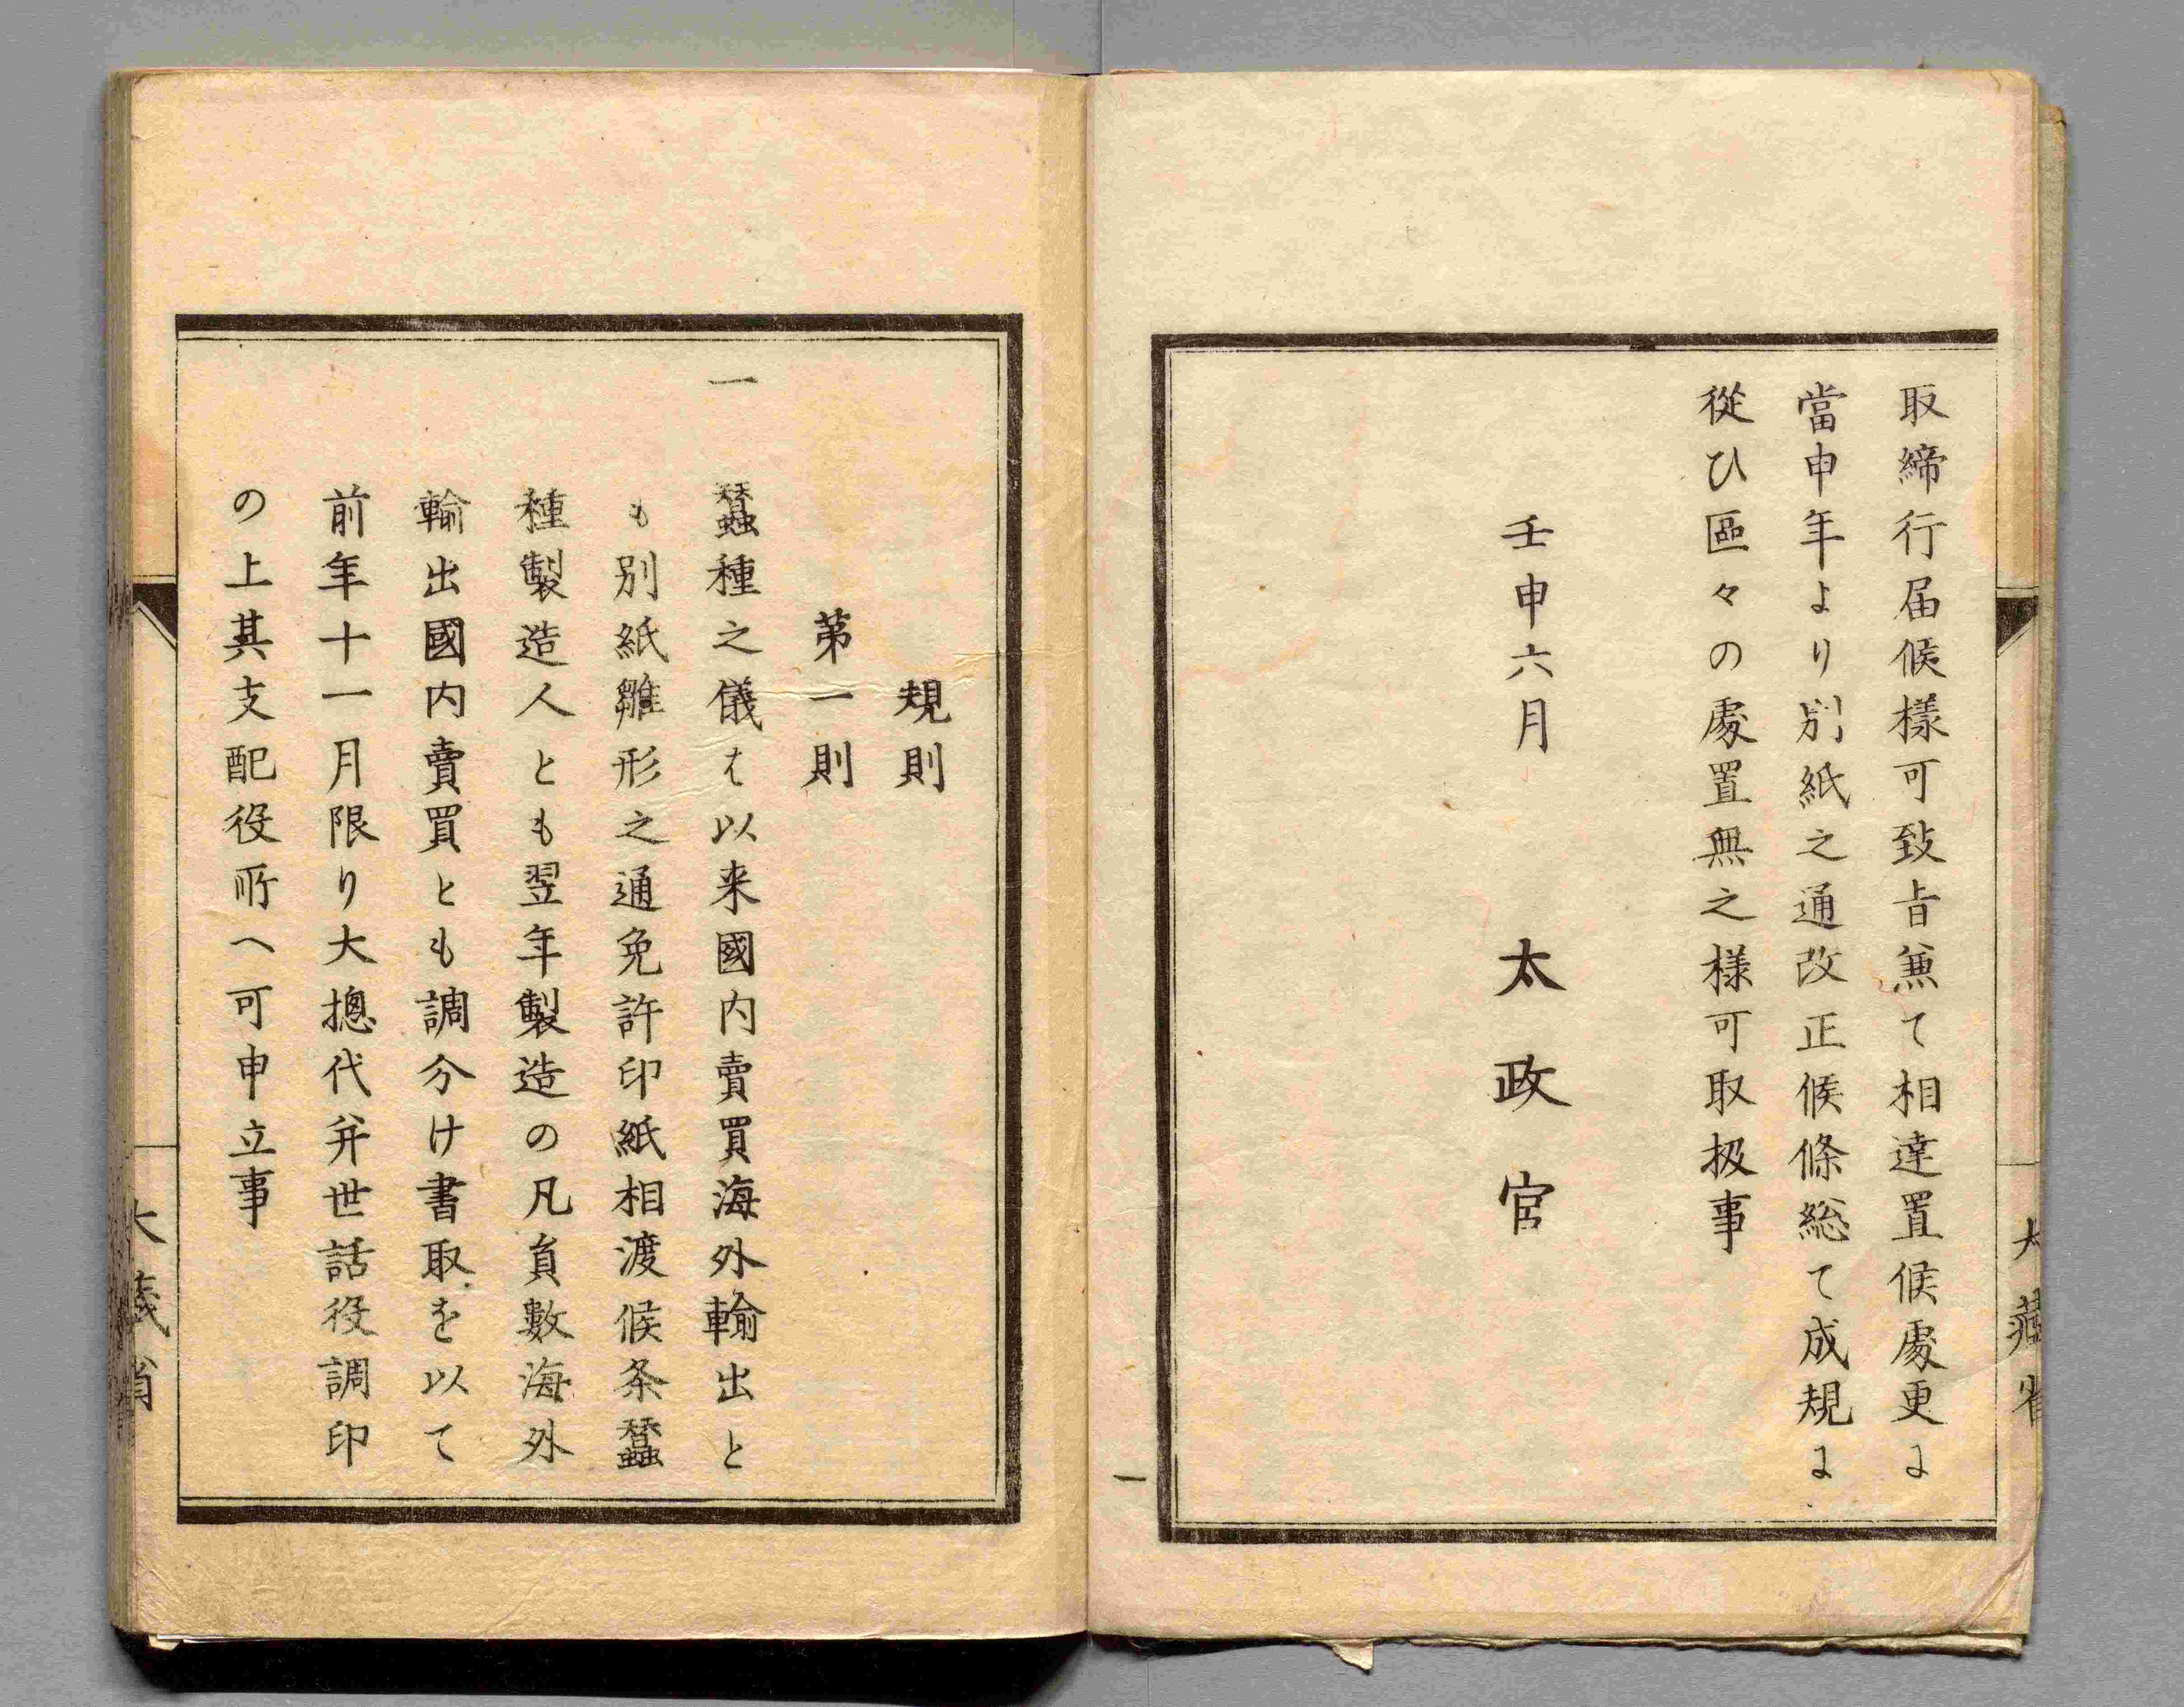 取締行届候樣可致旨兼て相達置候處更に
當申年より別紙之通改正候條総て成規に
從ひ區々の處置無之樣可取扱事
壬申六月
太政官
一
大藏省
規則
第一則
一 蠶種之儀は以来國内賣買海外輸出と
も別紙雛形之通免許印紙相渡候条蠶
種製造人とも翌年製造の凡員數海外
輸出國内賣買とも調分け書取を以て
前年十一月限り大摠代并世話役調印
の上其支配役所へ可申立事
大藏省